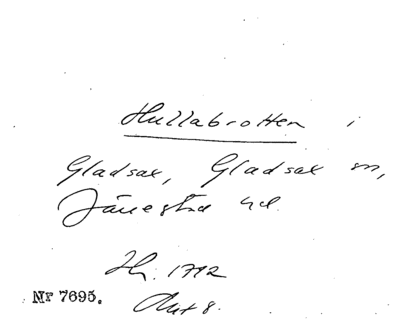 Hullabrotten i
Gladsax, Gladsax sn,
Järrestad hd.
Hj. 1792
Akt 8.
Nr 7695.